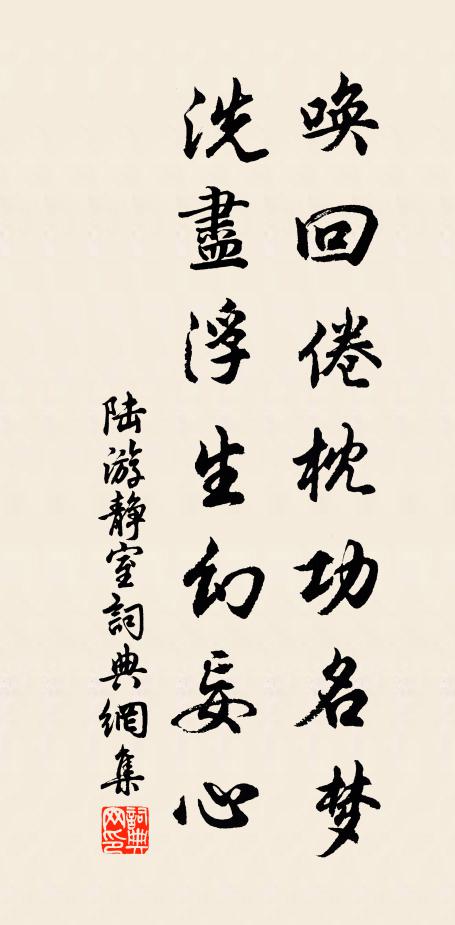 唤回倦枕功名梦
洗盡浮生幻妄心
陆游静室詞典網集
詞典网印